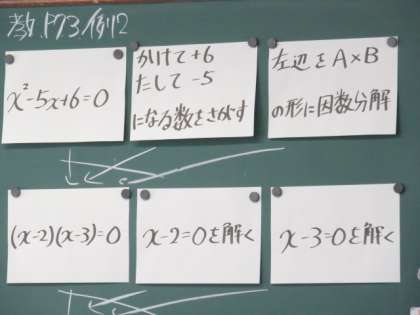 教.P73.例12
x²-5x+6=0
かけて+6
たして-5
になる数をさがす
左辺をA×B
の形に因数分解
(x-2)(x-3)=0
x-2=0を解く
x-3=0を解く